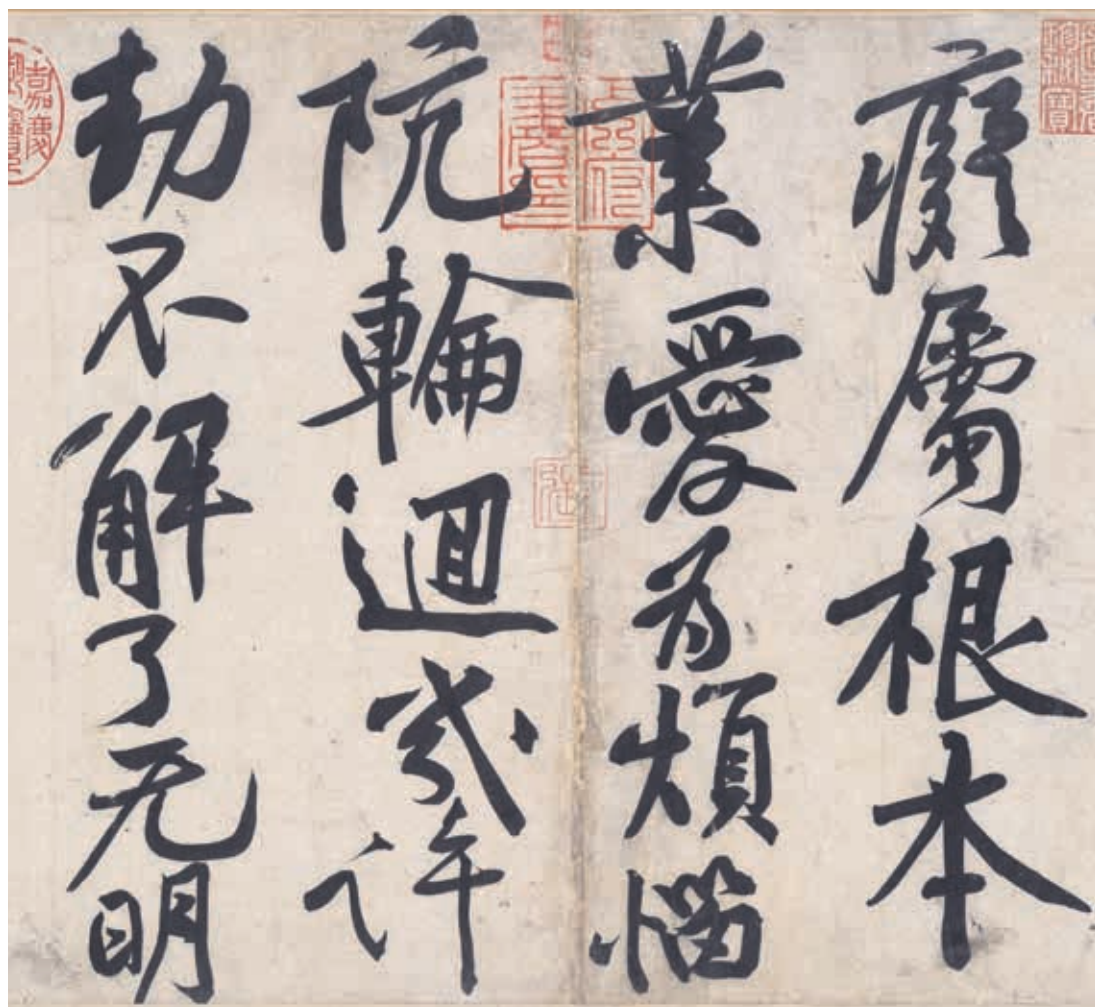 癡屬根本
業愛為煩惱
阬輪迴幾許
劫不解了无明
嘉慶